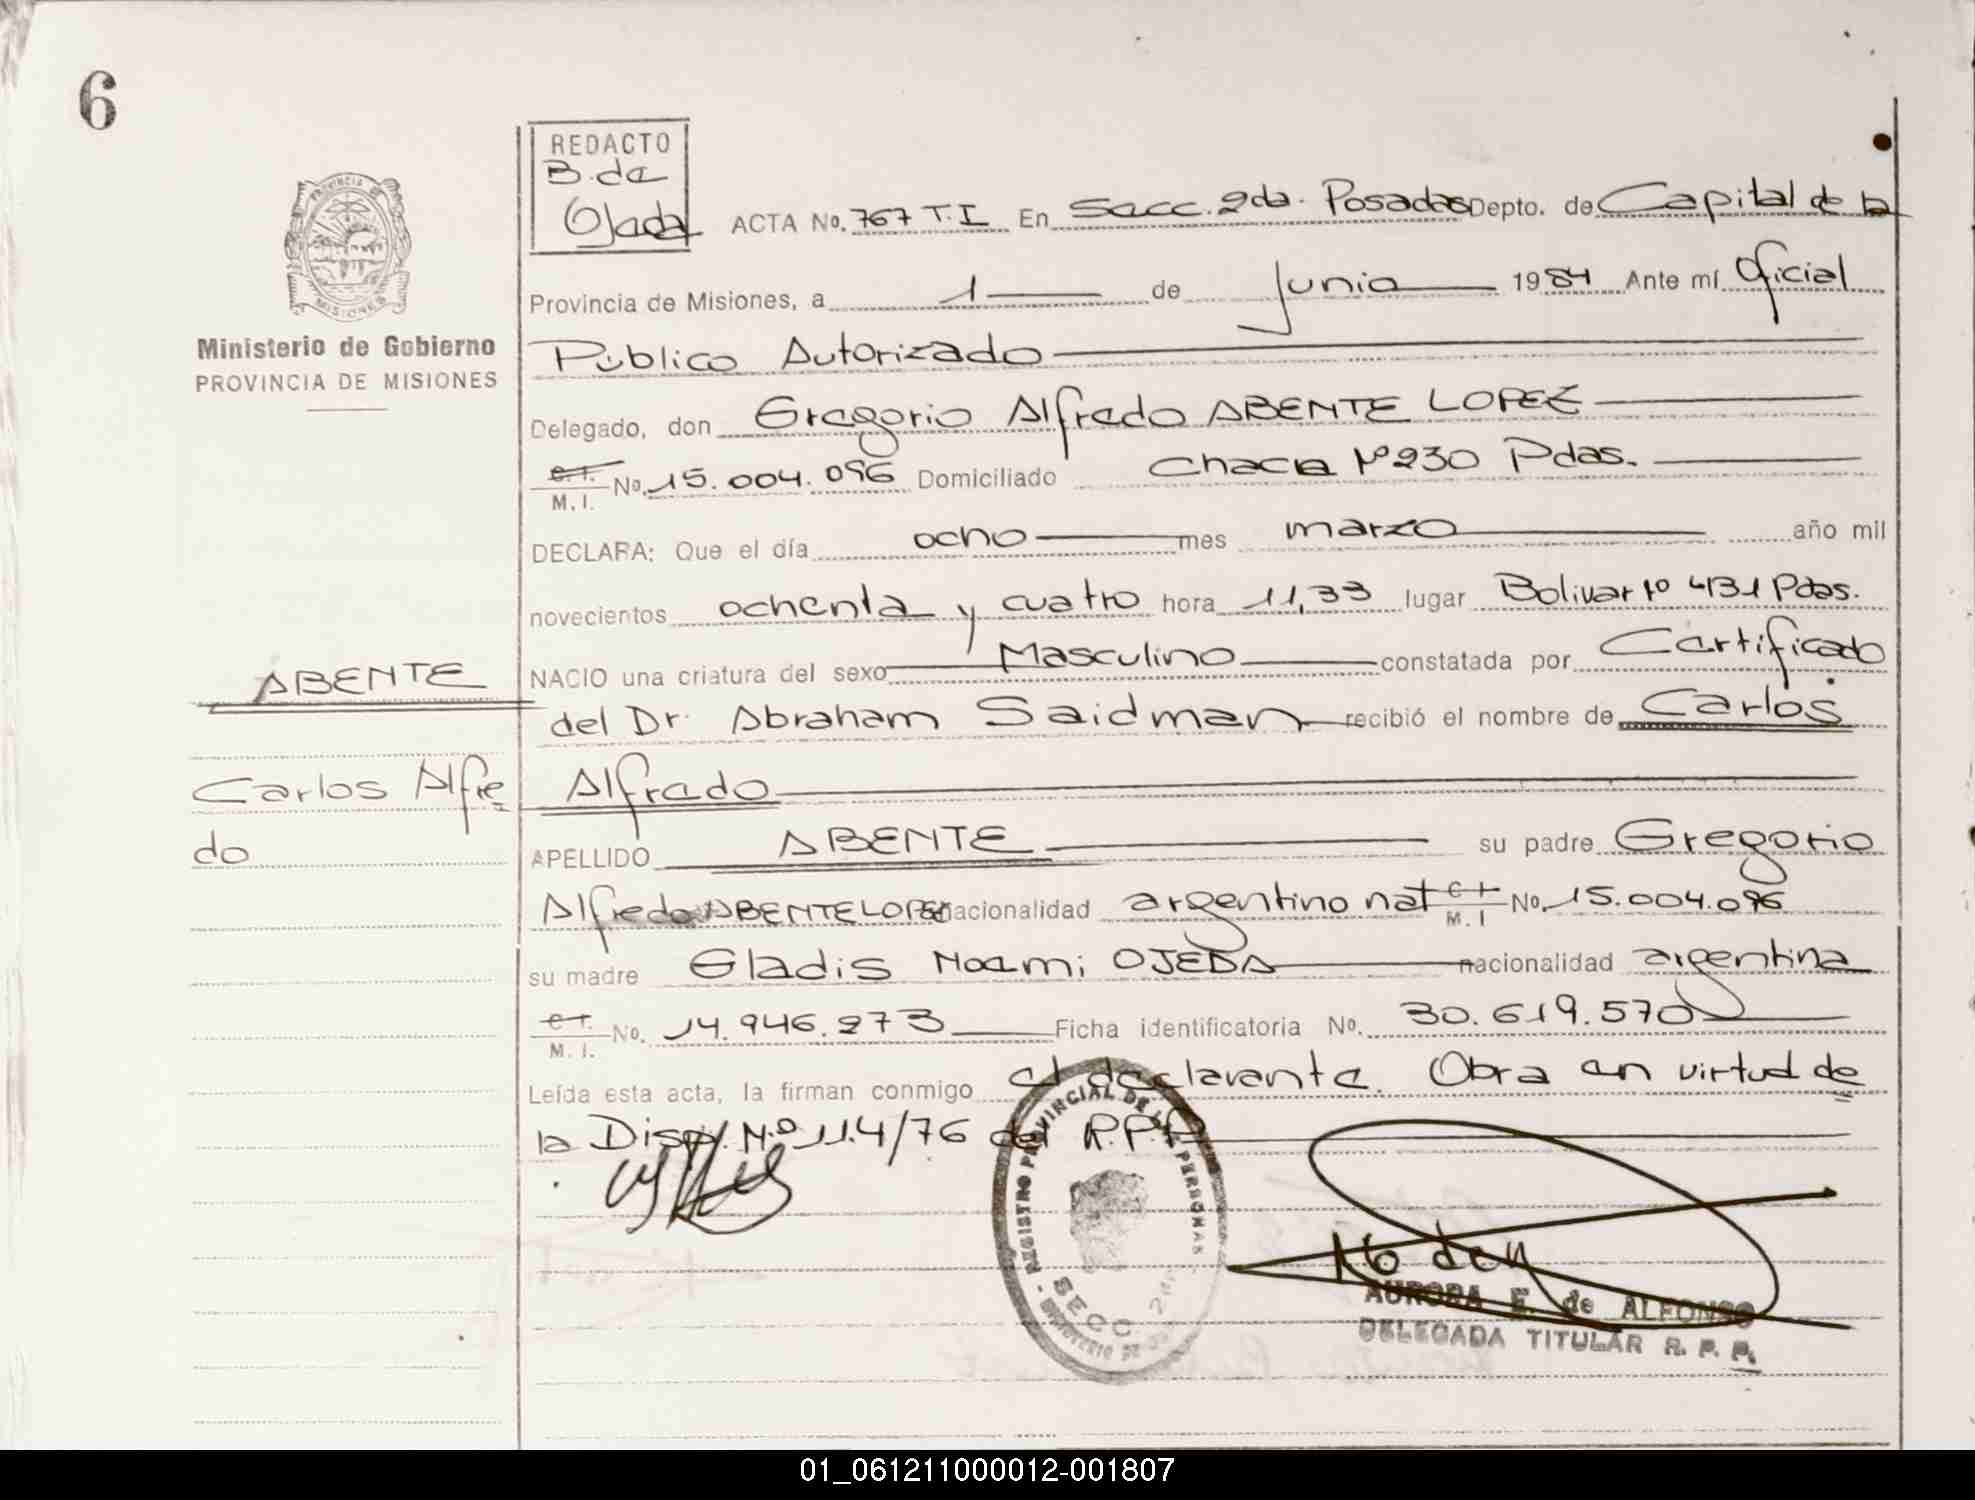 6
REDACTO
B. de
Ojeda
ACTA No. 767 T.I En Secc. 2da. Posadas Depto. de Capital de la
Provincia de Misiones, a 1 de Junio 1984 Ante mí Oficial
Público Autorizado
Delegado, don Gregorio Alfredo ABENTE LOPEZ
C.I.
M.I. No. 15.004.096 Domiciliado Chacra Nº 230 Pdas.
DECLARA: Que el día ocho mes marzo año mil
novecientos ochenta y cuatro hora 11,33 lugar Bolivar Nº 4131 Pdas.
NACIO una criatura del sexo Masculino constatada por Certificado
del Dr. Abraham Saidman recibió el nombre de Carlos
Alfredo
APELLIDO ABENTE su padre Gregorio
Alfredo ABENTE LOPEZ nacionalidad argentino nat C.I. M.I No. 15.004.096
su madre Gladis Noemi OJEDA nacionalidad argentina
C.I.
M.I. No. 14.946.273 Ficha identificatoria No. 30.619.570
Leída esta acta, la firman conmigo el declarante. Obra en virtud de
la Disp. N.º 114/76 del R.P.P.
PROVINCIA DE
MISIONES
Ministerio de Gobierno
PROVINCIA DE MISIONES
ABENTE
Carlos Alfre
do
REGISTRO PROVINCIAL DE LAS PERSONAS
SECC. 2da
AURORA E. de ALFONSO
DELEGADA TITULAR R. P. P.
01_061211000012-001807